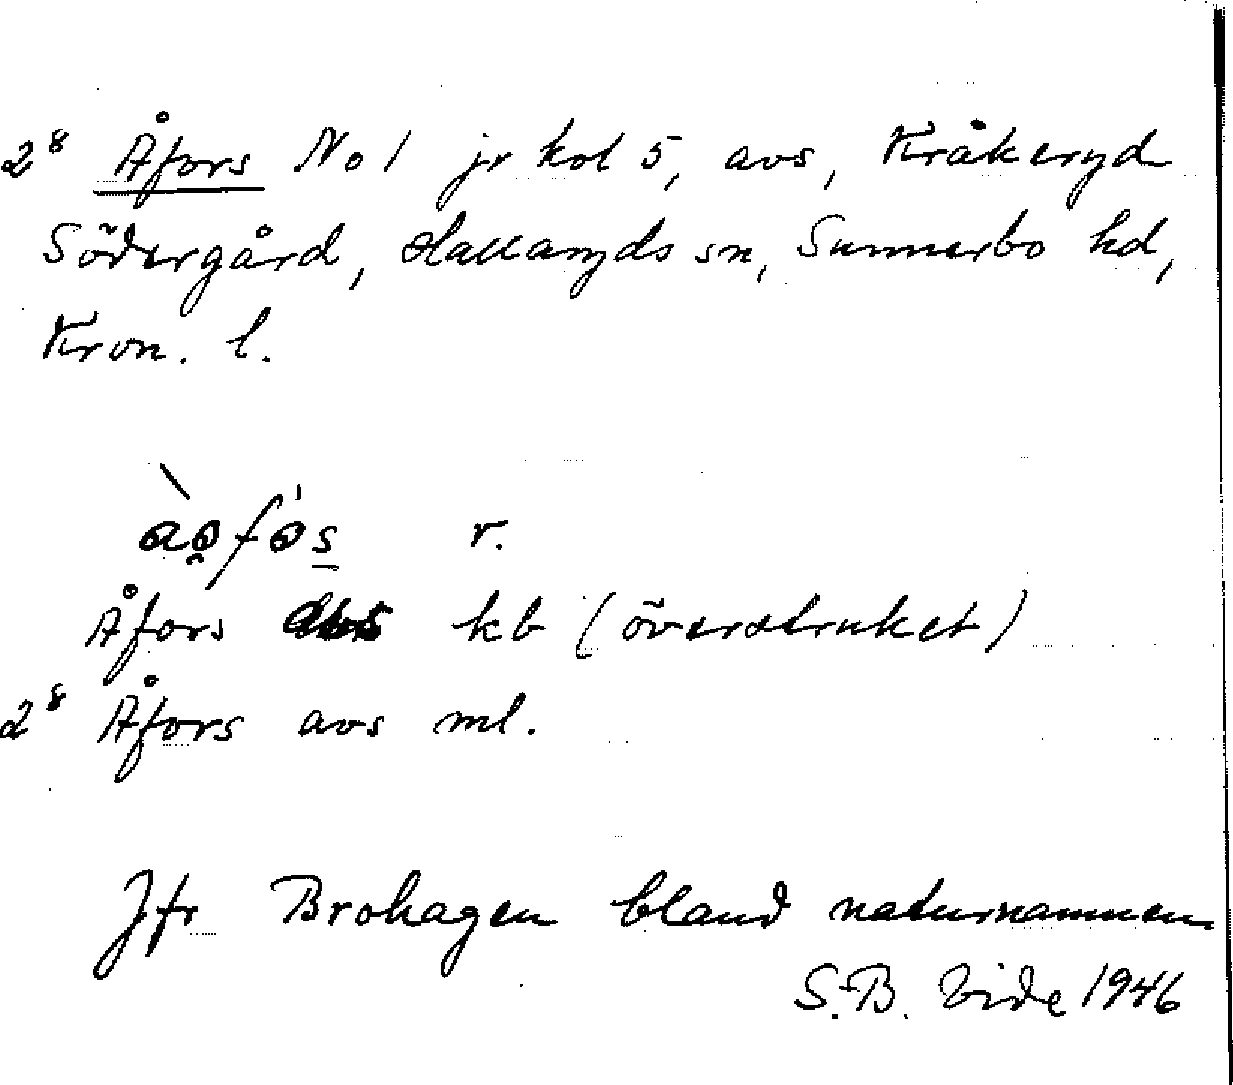 2⁸ Åfors No 1 jr kol 5, avs, Kråkeryd
Södergård, Hallaryds sn, Sunnerbo hd,
Kron. l.
r.
Åfors kb (överstruket)
2⁸ Åfors avs ml.
Jfr Brohagen bland naturnamnen
S.B. Vide 1946